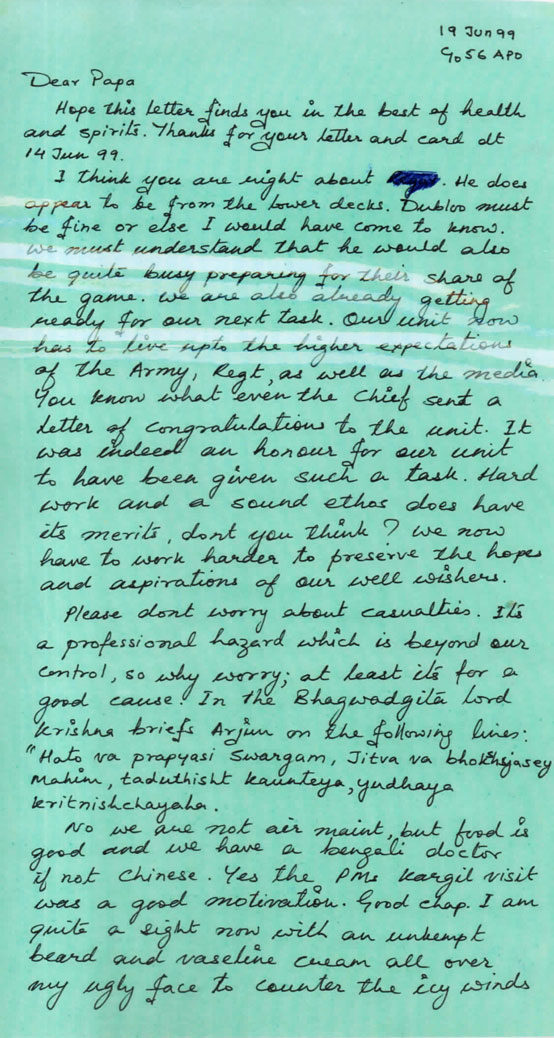 19 Jun 99
C/o 56 APO
Dear Papa
Hope this letter finds you in the best of health
and spirits. Thanks for your letter and card dt
14 Jun 99.
I think you are right about . He does
appear to be from the lower decks. Dubloo must
be fine or else I would have come to know.
We must understand that he would also
be quite busy preparing for their share of
the game. We are also already getting
ready for our next task. Our unit now
has to live upto the higher expectations
of the Army, Regt, as well as the media.
You know what even the Chief sent a
letter of congratulations to the unit. It
was indeed an honour for our unit
to have been given such a task. Hard
work and a sound ethos does have
its merits, dont you think? We now
have to work harder to preserve the hopes
and aspirations of our well wishers.
Please dont worry about casualties. Its
a professional hazard which is beyond our
control, so why worry; at least its for a
good cause. In the Bhagwadgita Lord
Krishna briefs Arjun on the following lines:
"Hato va prapyasi Swargam, Jitva va bhokshyasey
Mahim, taduthisht kaunteya, yudhaya
kritnishchayaha.
No we are not air maint, but food is
good and we have a bengali doctor
if not Chinese. Yes the PMs Kargil visit
was a good motivation. Good chap. I am
quite a sight now with an unkempt
beard and vaseline cream all over
my ugly face to counter the icy winds